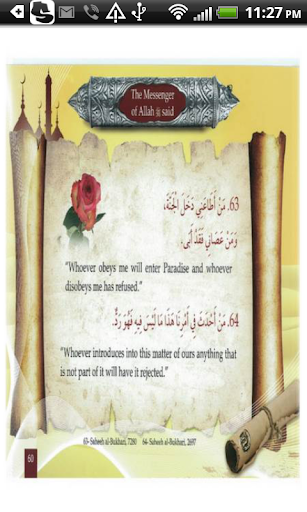 11:27 PM
The Messenger
of Allah ﷺ said
63. مَنْ أَطَاعَنِي دَخَلَ الْجَنَّةَ،
وَمَنْ عَصَانِي فَقَدْ أَبَى.
“Whoever obeys me will enter Paradise and whoever
disobeys me has refused.”
64. مَنْ أَحْدَثَ فِي أَمْرِنَا هَذَا مَا لَيْسَ فِيهِ فَهُوَ رَدٌّ.
“Whoever introduces into this matter of ours anything that
is not part of it will have it rejected.”
63- Saheeh al-Bukhari, 7280 64- Saheeh al-Bukhari, 2697
60